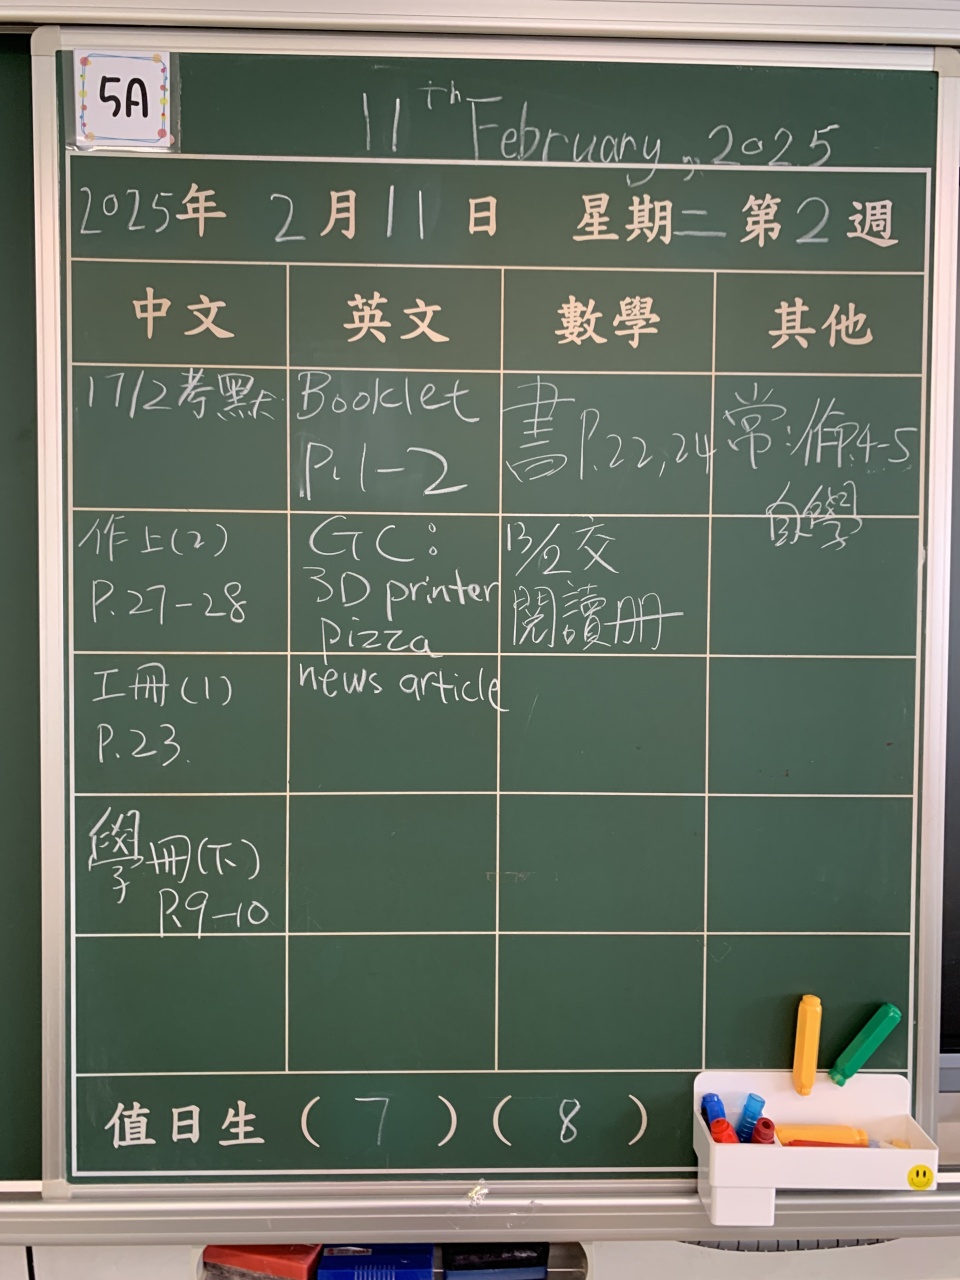 5A
11th February, 2025
2025年 2月11日 星期二 第2週
中文 英文 數學 其他
17/2考默
作上(2)
P.27-28
工冊(1)
P.23.
學冊(下)
P.9-10
Booklet
P.1-2
GC:
3D printer
pizza
news article
書P.22,24
13/2交
閱讀册
常:作P.4-5
自學
值日生(7)(8)